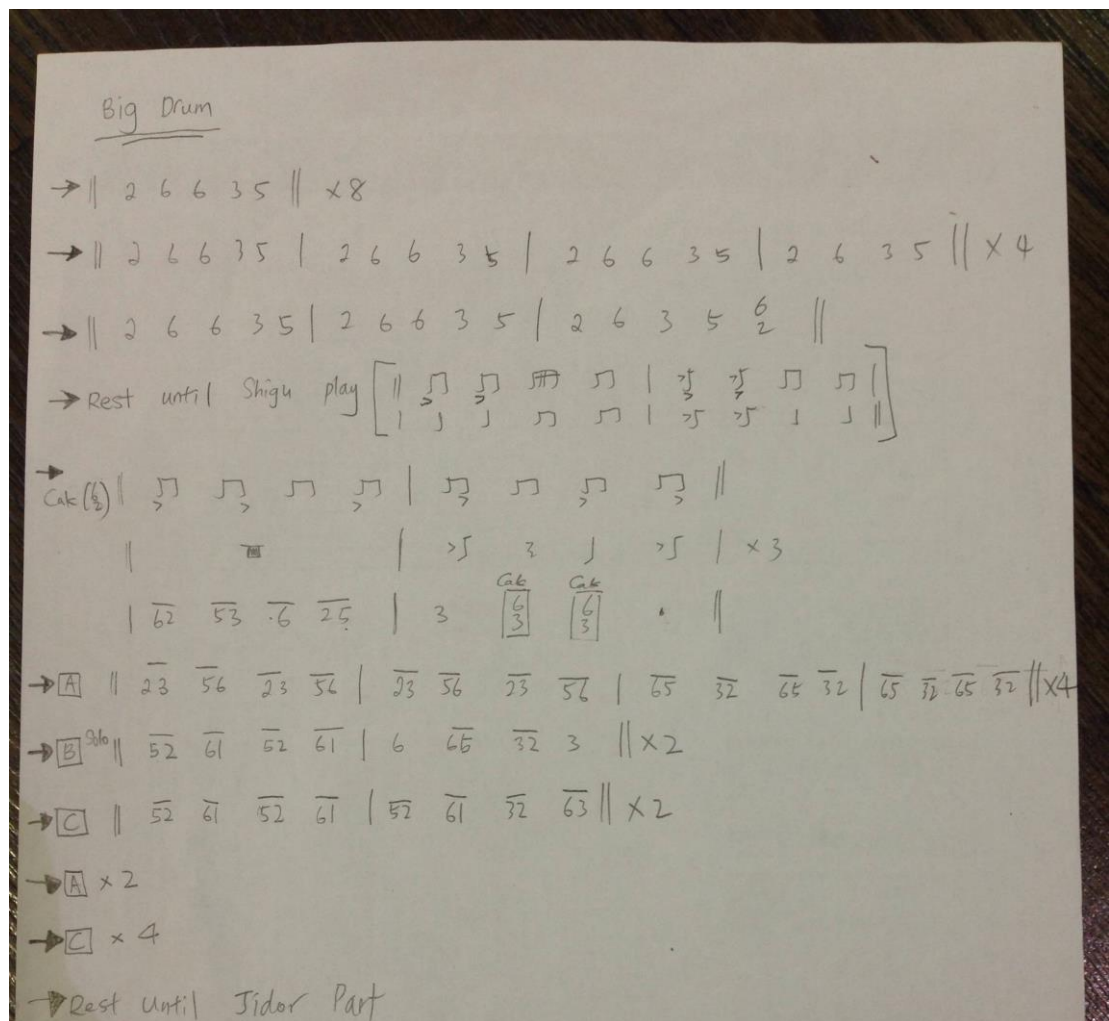 Big Drum
→ || 2 6 6 3 5 || ×8
→ || 2 6 6 3 5 | 2 6 6 3 5 | 2 6 6 3 5 | 2 6 3 5 || ×4
→ || 2 6 6 3 5 | 2 6 6 3 5 | 2 6 3 5 6/2 ||
→ Rest until Shigu play
→
||
|| | >5 3 | ×3
Cak Cak
| 62 53 ·6 25 | 3 6/3 6/3 · ||
→ A || 23 56 23 56 | 23 56 23 56 | 65 32 65 32 | 65 32 65 32 || ×4
→ B Solo || 52 61 52 61 | 6 65 32 3 || ×2
→ C || 52 61 52 61 | 52 61 32 63 || ×2
→ A ×2
→ C ×4
→ Rest Until Jidor Part